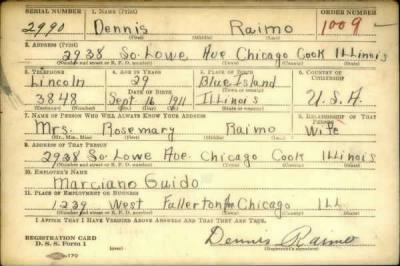 SERIAL NUMBER 1. NAME (Print) ORDER NUMBER
2990 Dennis Raimo 1009
(First) (Middle) (Last)
2. ADDRESS (Print)
2938 So. Lowe Ave Chicago Cook Illinois
(Number and street or R. F. D. number) (Town) (County) (State)
3. TELEPHONE 4. AGE IN YEARS 5. PLACE OF BIRTH 6. COUNTRY OF CITIZENSHIP
Lincoln 29 Blue Island
DATE OF BIRTH
3848 Sept 16 1911 Illinois U.S.A.
7. NAME OF PERSON WHO WILL ALWAYS KNOW YOUR ADDRESS 8. RELATIONSHIP OF THAT PERSON
Mrs. Rosemary Raimo Wife
(Mr., Mrs., Miss) (First) (Middle) (Last)
9. ADDRESS OF THAT PERSON
2938 So Lowe Ave. Chicago Cook Illinois
(Number and street or R. F. D. number) (Town) (County) (State)
10. EMPLOYER'S NAME
Marciano Guido
11. PLACE OF EMPLOYMENT OR BUSINESS
1239 West Fullerton Chicago Ill
(Number and street or R. F. D. number) (Town) (County) (State)
I AFFIRM THAT I HAVE VERIFIED ABOVE ANSWERS AND THAT THEY ARE TRUE.
REGISTRATION CARD
D. S. S. Form 1 Dennis Raimo
(Registrant's signature)